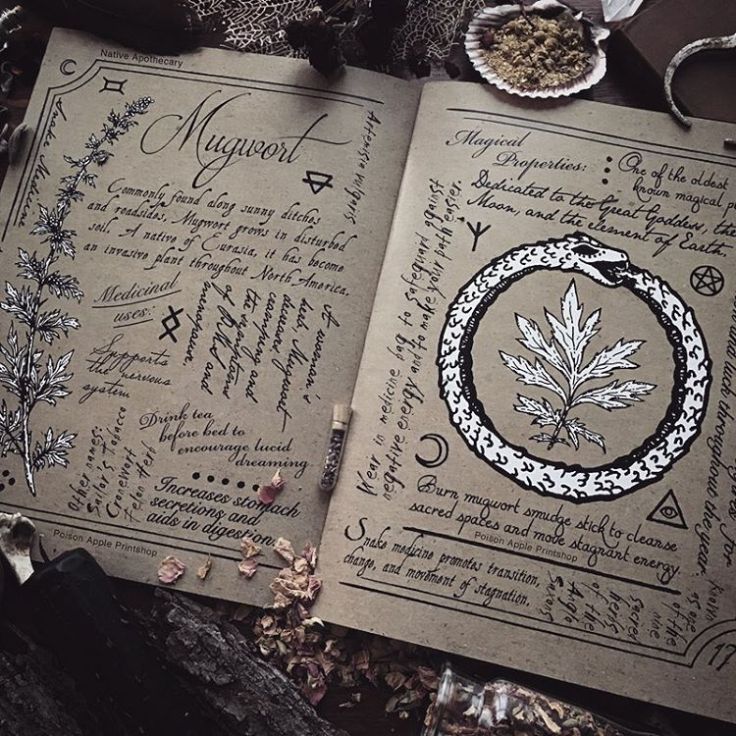 Native Apothecary
Snake Medicine
Mugwort
Artemisia vulgaris
Commonly found along sunny ditches
and roadsides, Mugwort grows in disturbed
soil. A native of Eurasia, it has become
an invasive plant throughout North America.
Medicinal
uses:
Supports
the nervous
system
A woman's
herb, Mugwort
decreases
cramping and
the symptoms
of PMS and
menopause.
Drink tea
before bed to
encourage lucid
dreaming
Other names:
Sailor's Tobacco
Cronewort
Felon Herb
Increases stomach
secretions and
aids in digestion.
Poison Apple Printshop
Magical
Properties:
One of the oldest
known magical
Dedicated to the Great Goddess, the
Moon, and the element of Earth.
Wear in medicine bag to safeguard against
negative energy and to make your path easier.
and luck throughout the year.
for
Burn mugwort smudge stick to cleanse
sacred spaces and move stagnant energy.
Poison Apple Printshop
Snake medicine promotes transition,
change, and movement of stagnation.
Known
as one
of the
nine
sacred
herbs
of the
Anglo
Saxons
17